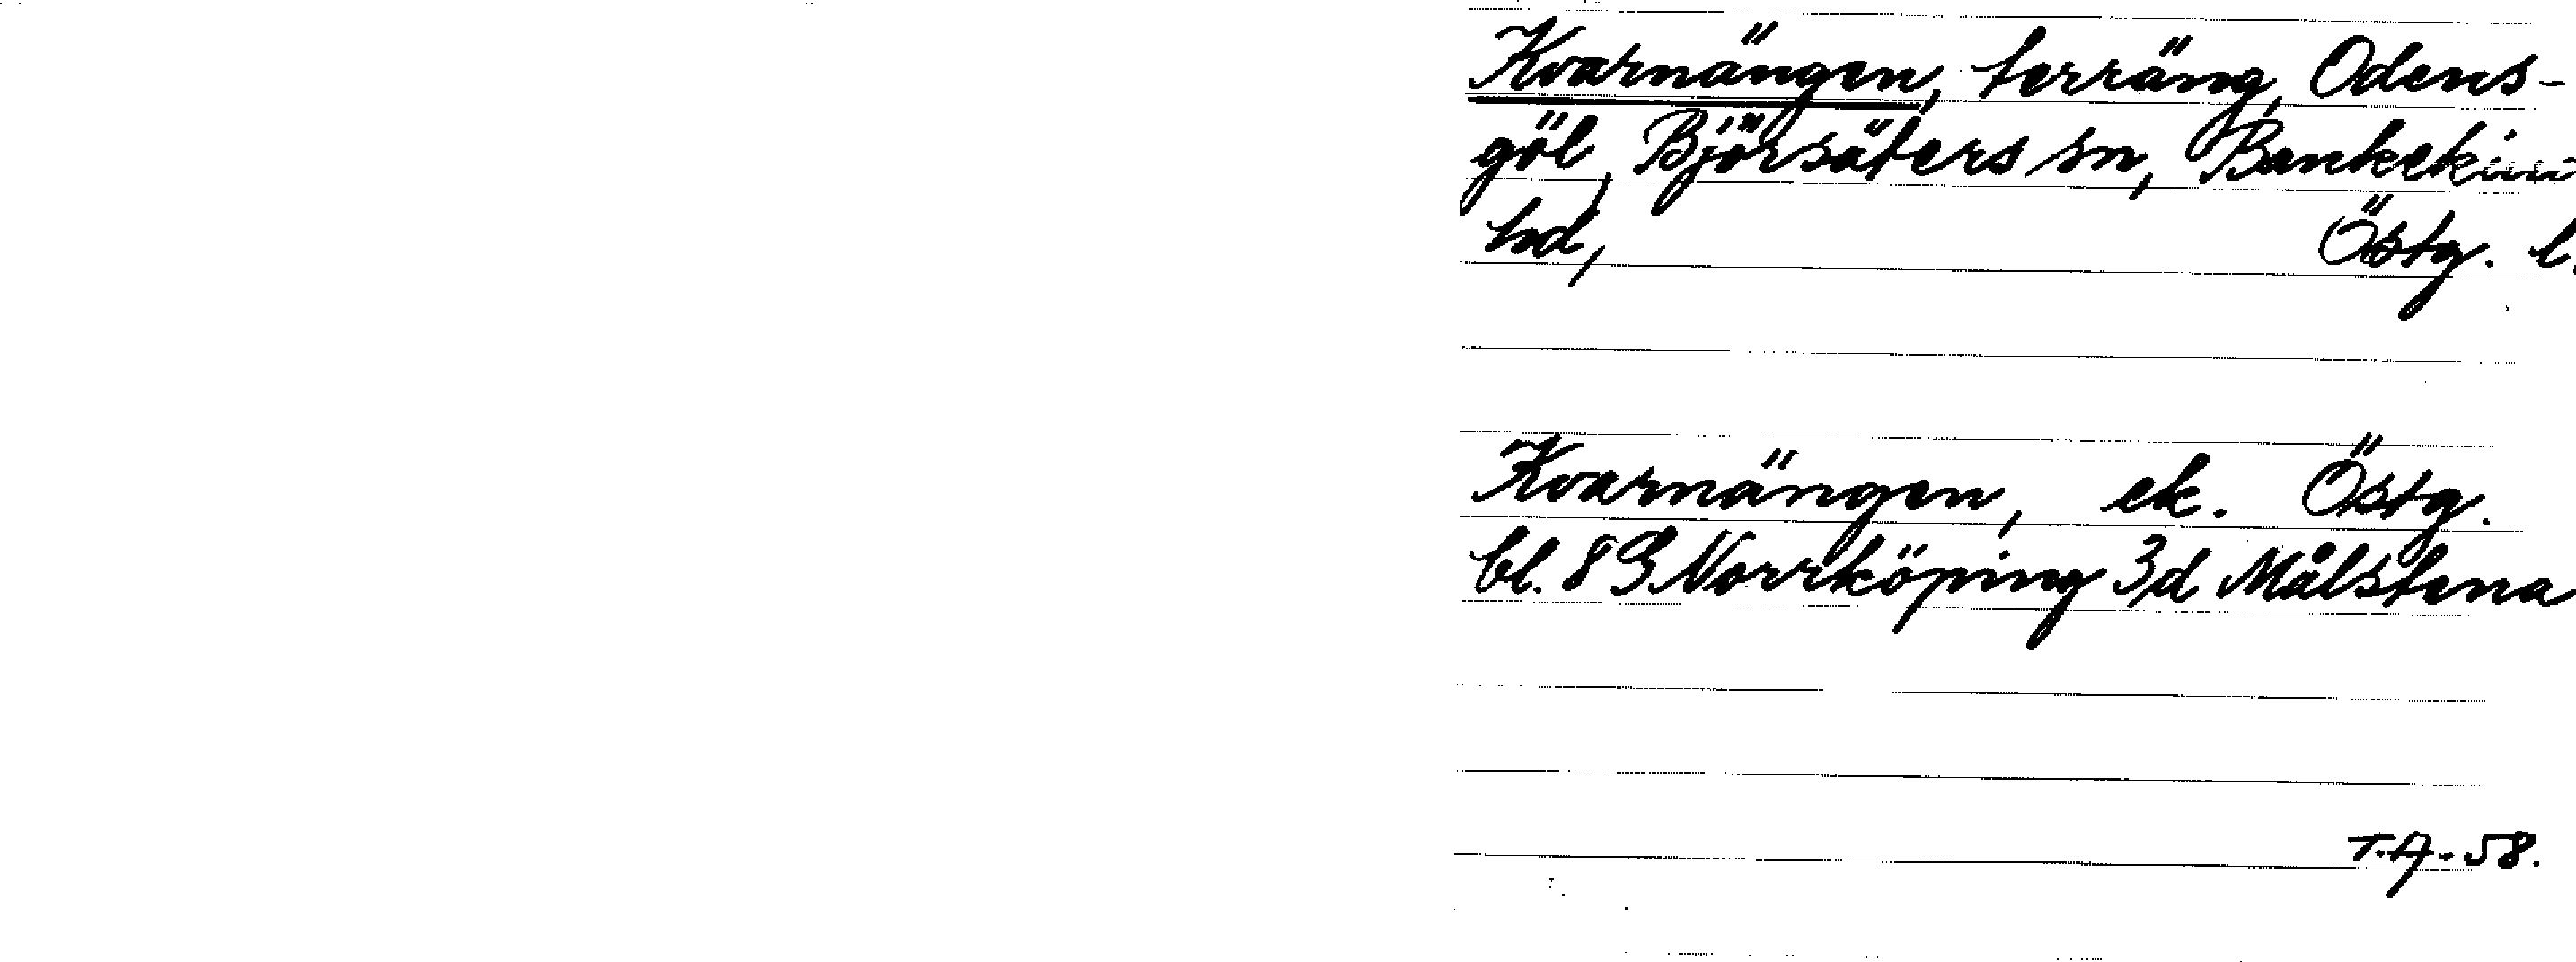 Kvarnängen, terräng, Odens-
göl, Björsäters sn, Bankekin
hd, Östg. l.
Kvarnängen, ek. Östg.
bl. 8 G Norrköping 3d Målstena
T.A-58.